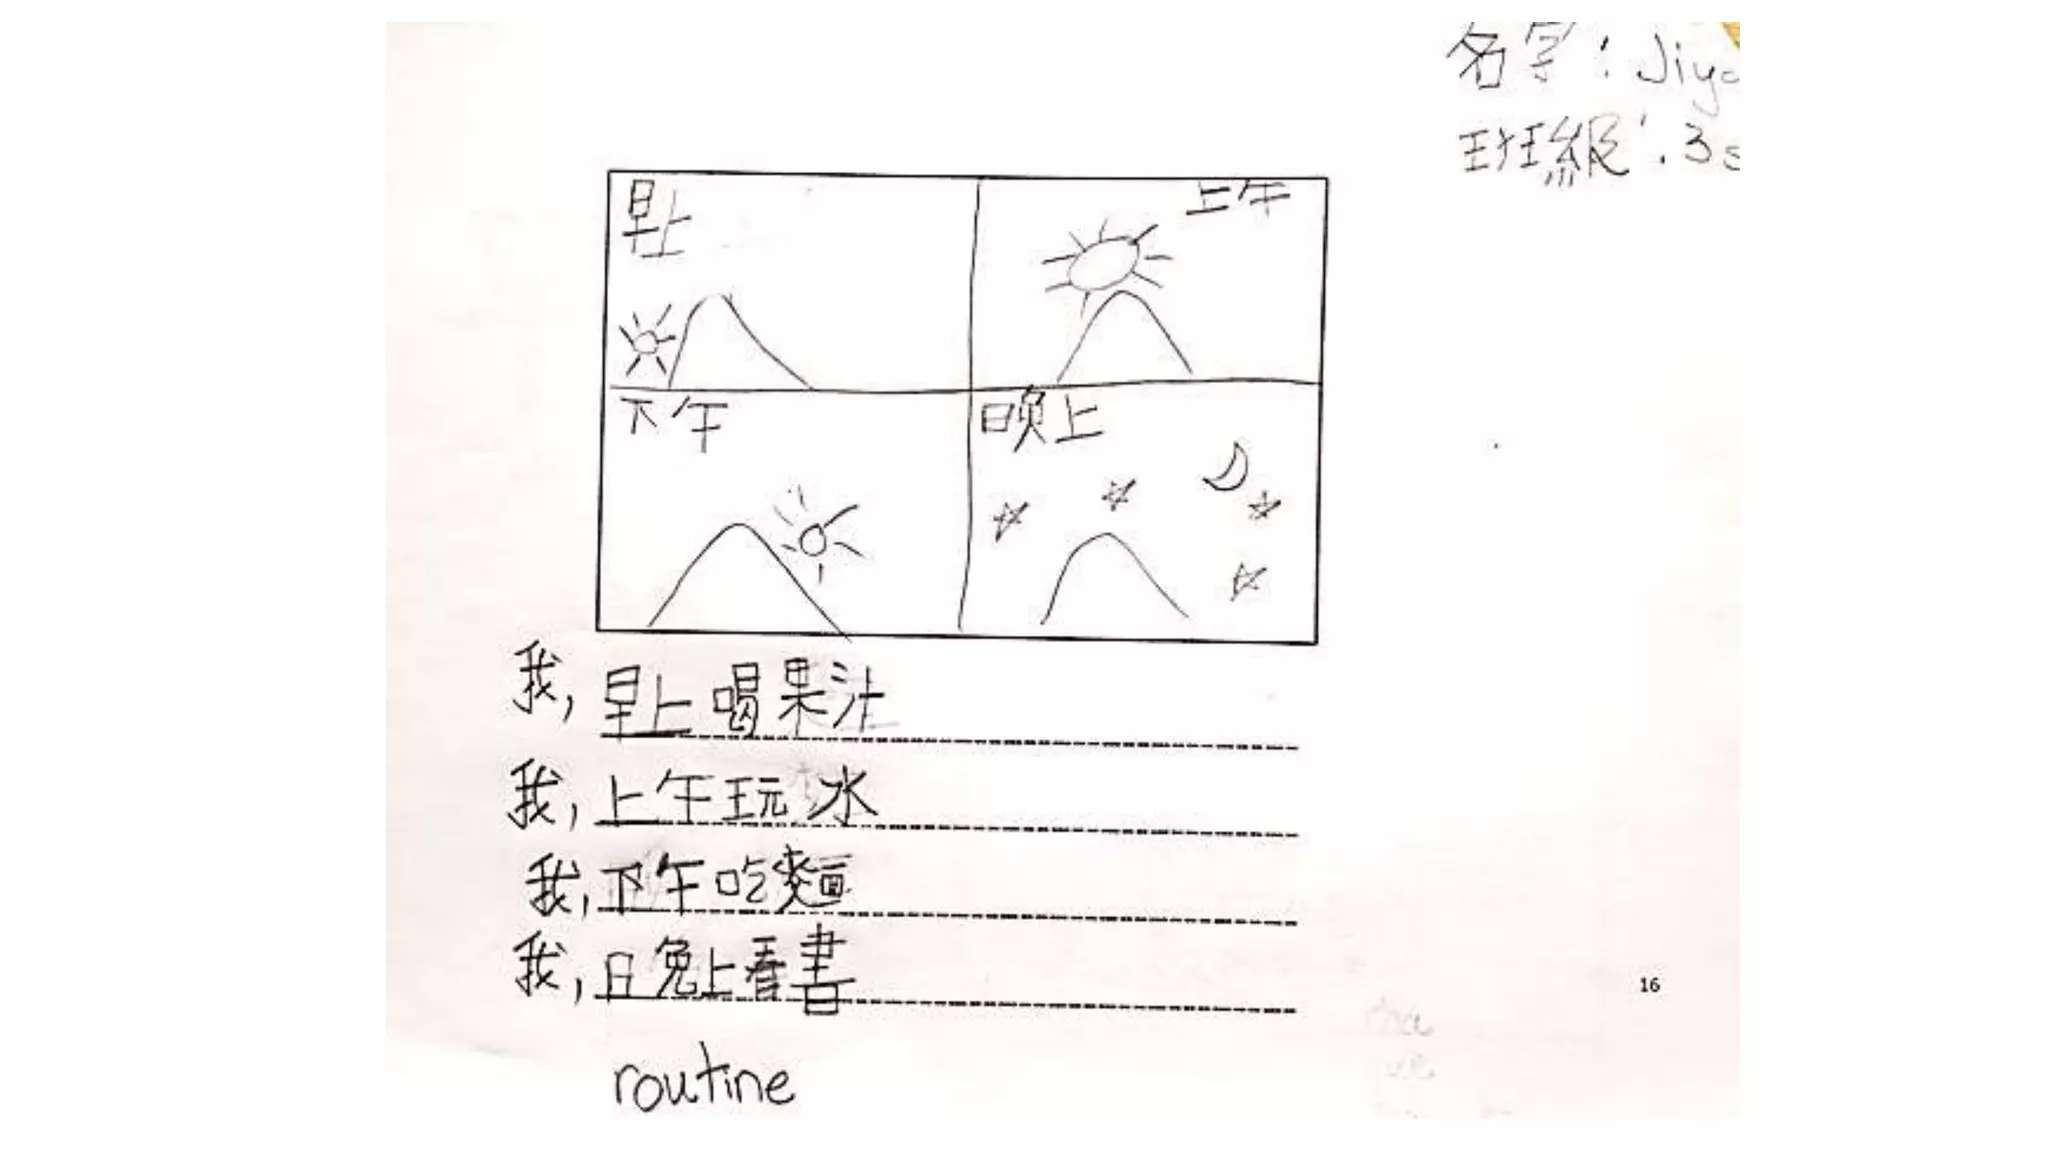 名字：Jiya
班級：3s
早上
上午
下午
晚上
我，早上喝果汁
我，上午玩水
我，下午吃麵
我，晚上看書
16
routine